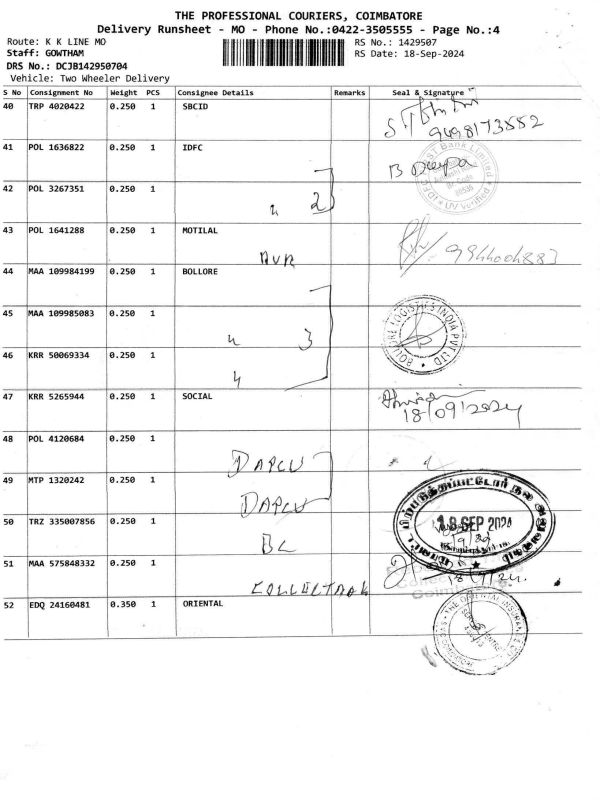 THE PROFESSIONAL COURIERS, COIMBATORE
Delivery Runsheet - MO - Phone No.:0422-3505555 - Page No.:4
Route: K K LINE MO
RS No.: 1429507
Staff: GOWTHAM
RS Date: 18-Sep-2024
DRS No.: DCJB142950704
Vehicle: Two Wheeler Delivery
S No Consignment No Weight PCS Consignee Details Remarks Seal & Signature
40 TRP 4020422 0.250 1 SBCID
9498173552
41 POL 1636822 0.250 1 IDFC
B Deepa
42 POL 3267351 0.250 1
2
43 POL 1641288 0.250 1 MOTILAL
44 MAA 109984199 0.250 1 BOLLORE
45 MAA 109985083 0.250 1
3
BOLLORE LOGISTICS INDIA PVT LTD
46 KRR 50069334 0.250 1
47 KRR 5265944 0.250 1 SOCIAL
18/09/2024
48 POL 4120684 0.250 1
DAPCU
49 MTP 1320242 0.250 1
DAPCU
18 SEP 2024
50 TRZ 335007856 0.250 1
BC
51 MAA 575848332 0.250 1
COLLECTROR
18/9/24
52 EDQ 24160481 0.350 1 ORIENTAL